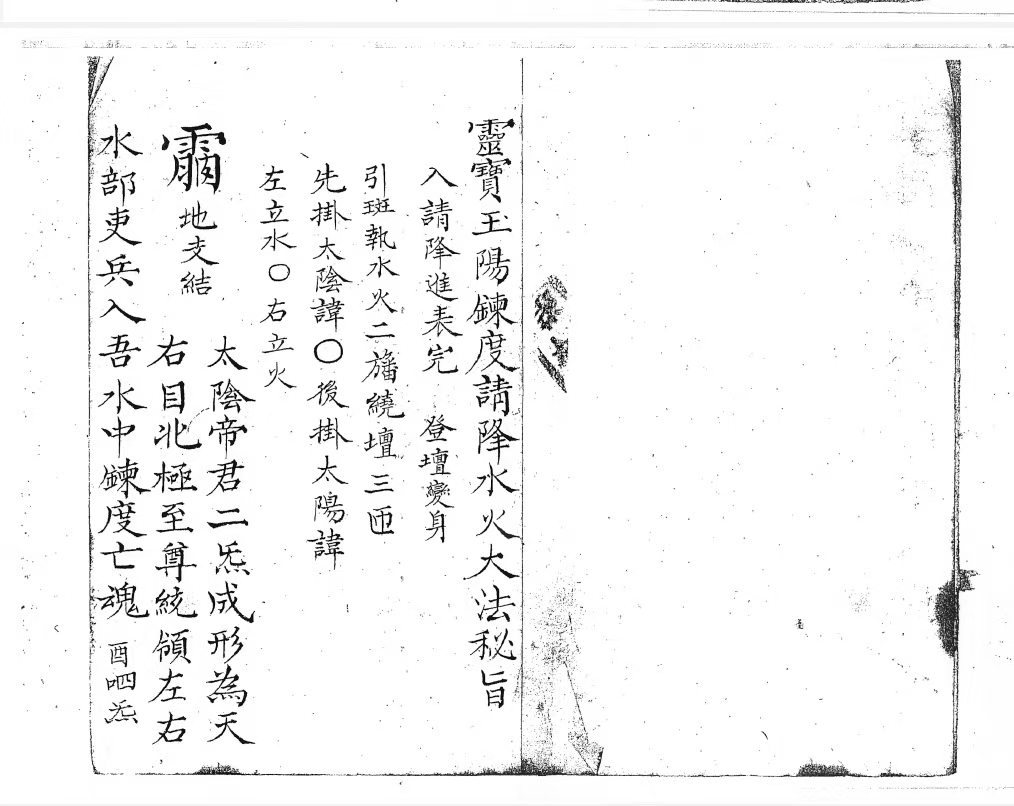 靈寶玉陽鍊度請降水火大法秘旨
入請降進表完 登壇變身
引班執水火二旛繞壇三匝
先掛太陰諱〇後掛太陽諱
左立水〇右立火
地支結
太陰帝君二炁成形為天
右目北極至尊統領左右
水部吏兵入吾水中鍊度亡魂 酉呬炁